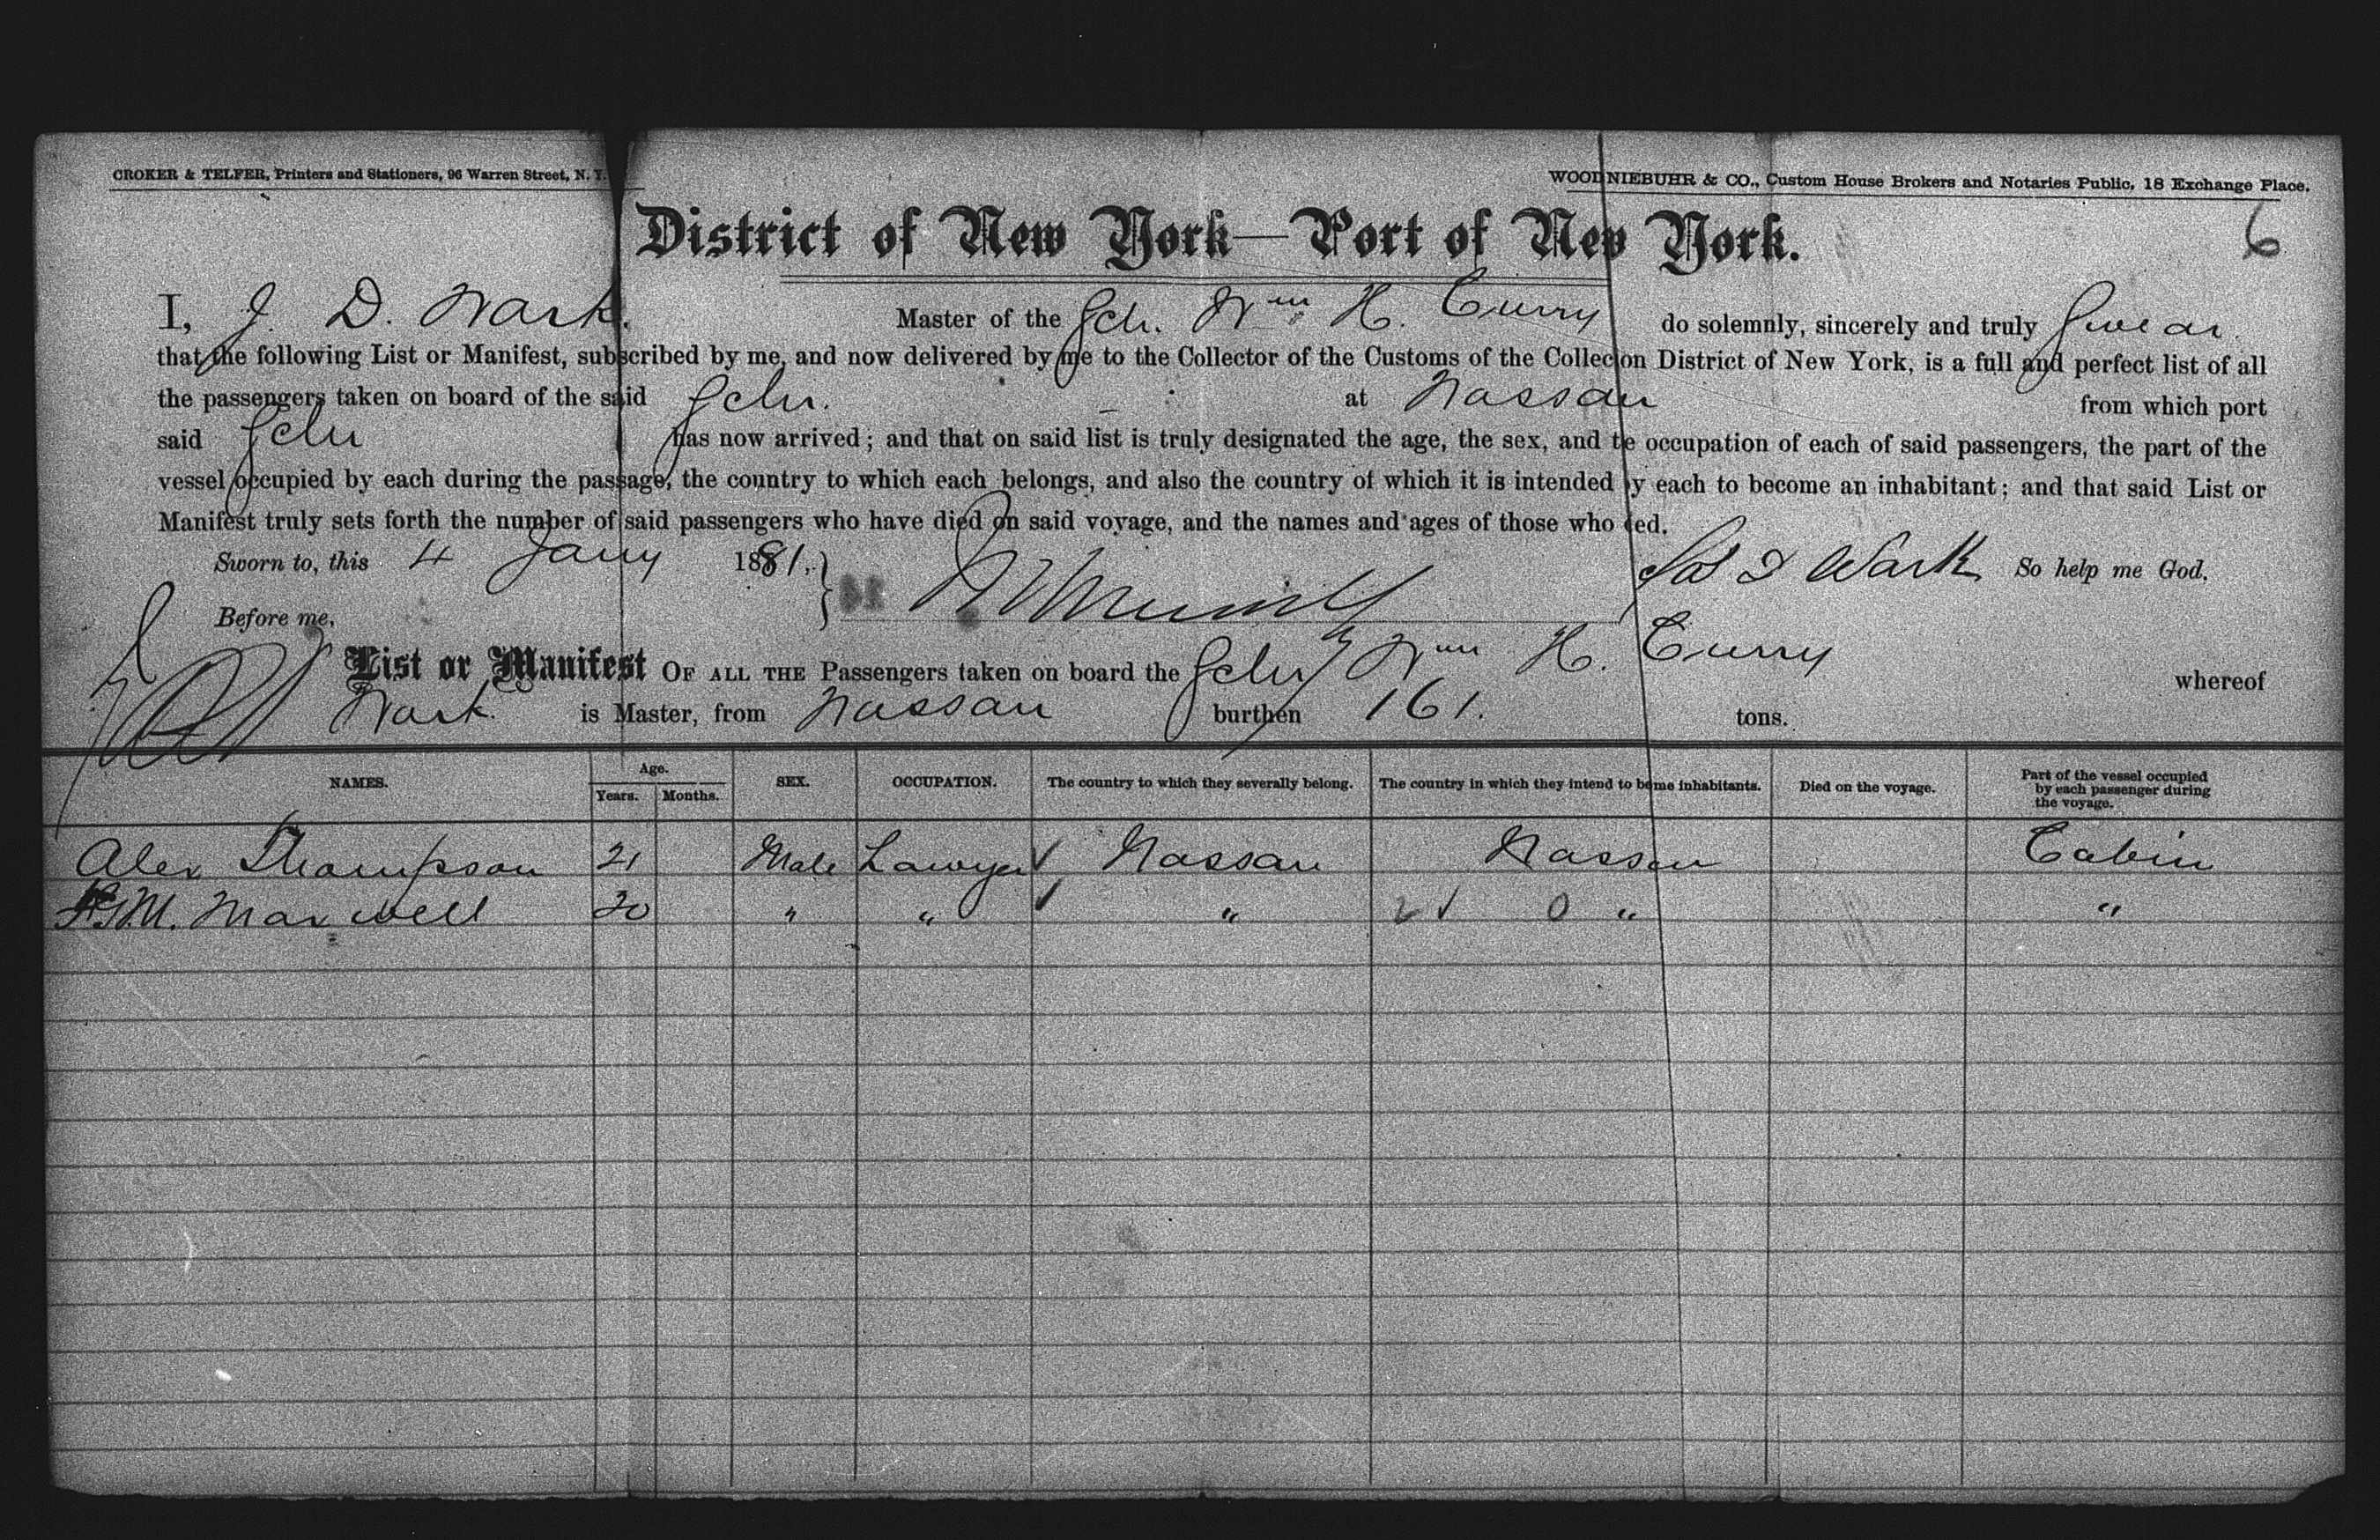 CROKER & TELFER, Printers and Stationers, 96 Warren Street, N. Y.
WOOD NIEBUHR & CO., Custom House Brokers and Notaries Public, 18 Exchange Place.
6
District of New York—Port of New York.
I, J. D. Wark. Master of the Sch. Wm H. Curry do solemnly, sincerely and truly Swear
that the following List or Manifest, subscribed by me, and now delivered by me to the Collector of the Customs of the Collecion District of New York, is a full and perfect list of all
the passengers taken on board of the said Schr. at Nassau from which port
said Schr has now arrived; and that on said list is truly designated the age, the sex, and te occupation of each of said passengers, the part of the
vessel occupied by each during the passage, the country to which each belongs, and also the country of which it is intended by each to become an inhabitant; and that said List or
Manifest truly sets forth the number of said passengers who have died on said voyage, and the names and ages of those who ied.
Sworn to, this 4 Jany 1881, Wark So help me God.
Before me,
List or Manifest OF ALL THE Passengers taken on board the Schr Wm H. Curry whereof
Wark is Master, from Nassau burthen 161. tons.
NAMES. Age. Years. Months. SEX. OCCUPATION. The country to which they severally belong. The country in which they intend to beme inhabitants. Died on the voyage. Part of the vessel occupied by each passenger during the voyage.
Alex Thompson 21 Male Lawyer ✓ Nassau Nassau Cabin
M. Maxwell 20 " " ✓ " 2 ✓ 0 " "